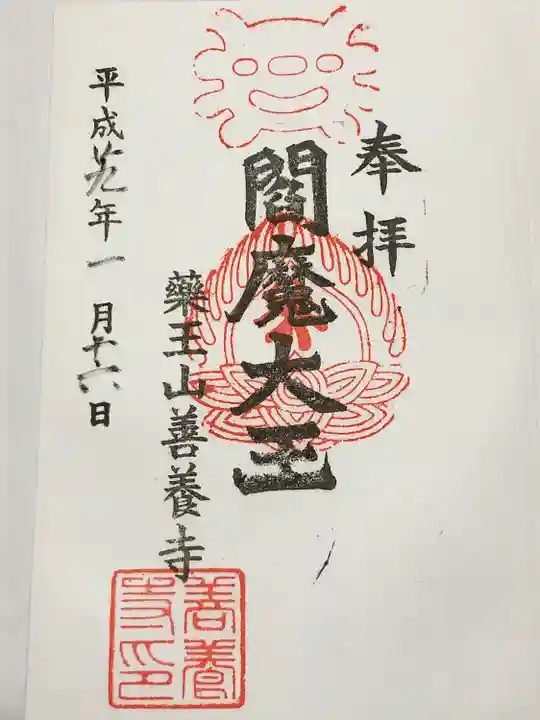 奉拝
閻魔大王
藥王山善養寺
平成廿九年一月十六日
善養
寺印